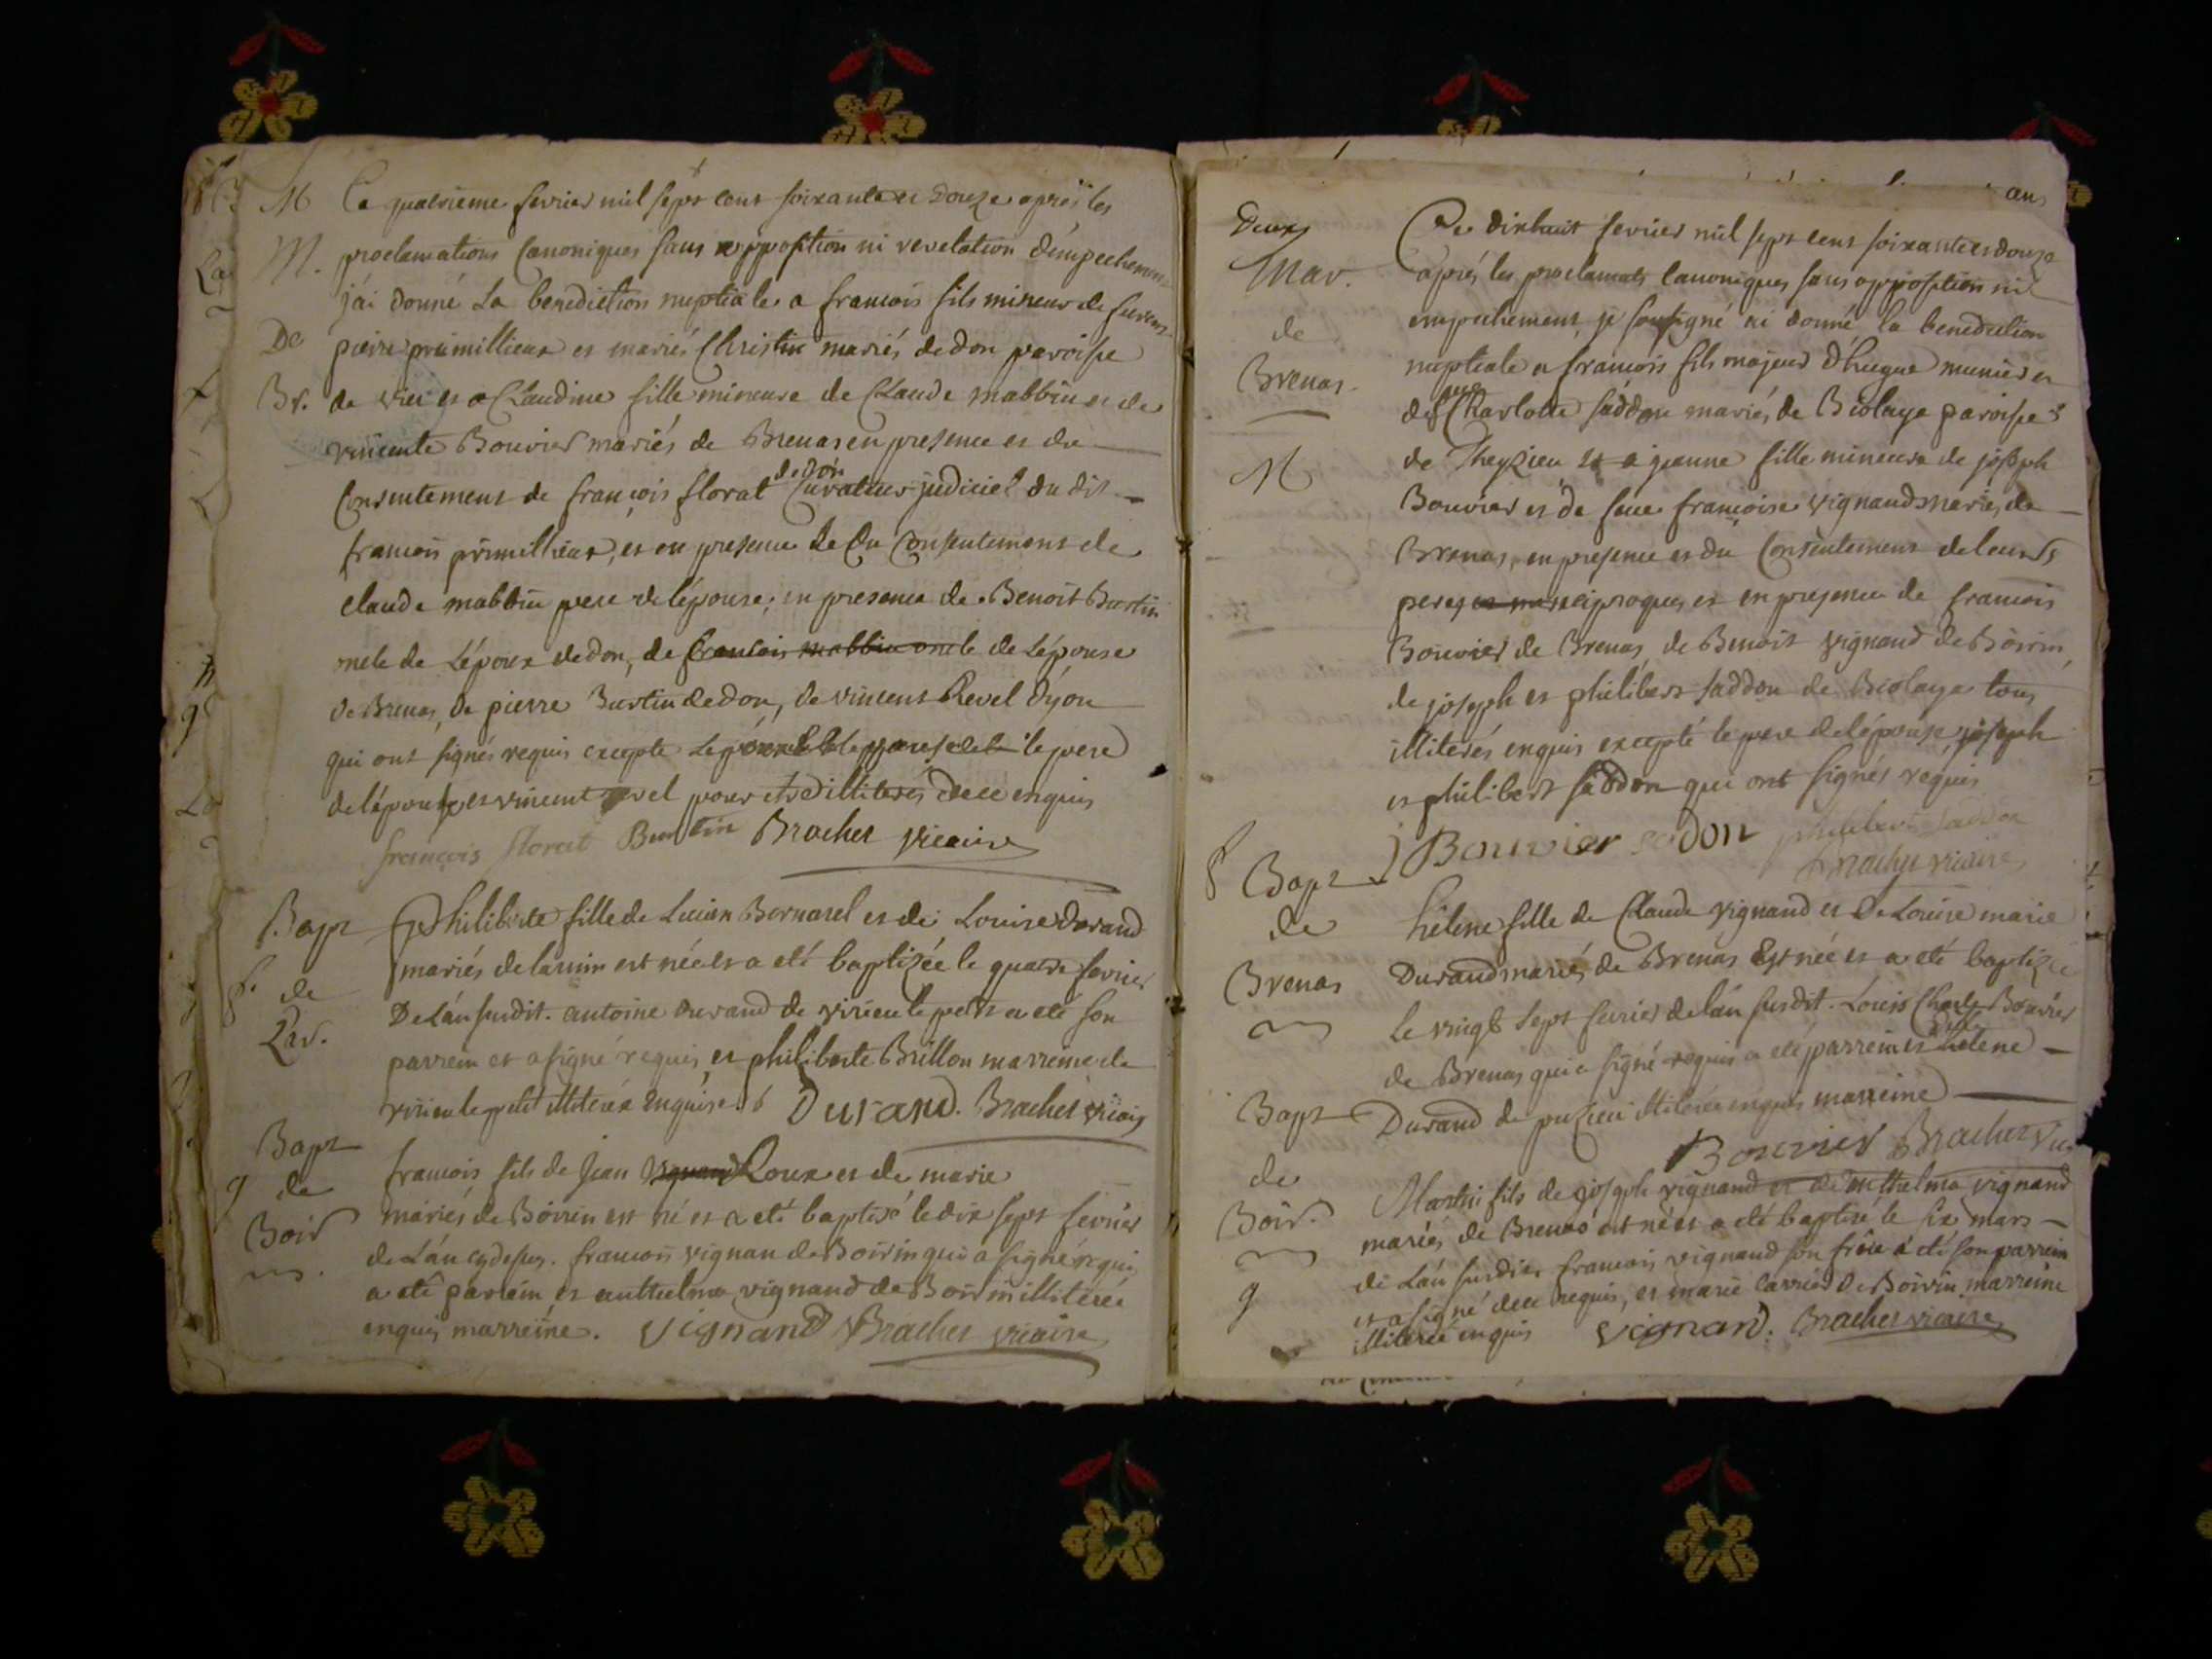 M Ce quatrieme fevrier mil sept cent soixante et douze après les
M. proclamations Canoniques sans opposition ni revelation d'émpechement
j'ai donné La benediction nuptiale a francois fils mineur de
De pierre primillieux et mariés Christin mariés de don paroisse
Br. de vieu et a Claudine fille mineure de Claude mabbiu et de
vincente Bouvier mariés de Brenas en presence et du
Consentement de françois florat de don Curateur judiciel du dit
francois primillieux, et en presence de Du Consentement de
claude mabbiu pere de lépouse, en presence de Benoit Burtin
oncle de Lépoux de don, de francois mabbiu oncle de Lépouse
de Brenas, de pierre Burtin de don, de vincent Revel dyon
qui ont signés requis excepte le pere
de lépouse et vincent revel pour etre illiterés de ce enquis
françois florat Burtin Brachet vicaire
Bapt Philiberte fille de Lucien Bernard et de Louise durand
mariés de lavnin est née et a eté baptizée le quatre fevrier
f. de De L'án susdit. antoine durand de virieu le petit a eté son
Lav. parrein et a signé requis, et philiberte Brillon marreine de
virieu le petit illiterée enquise. Durand. Brachet vicaire
Bapt
francois fils de Jean Roux et de marie
g de mariés de Boirin est né et a eté baptisé le dix sept fevrier
Boir de L'án cydessus. francois vignan de Boirin qui a signé requis
a eté parrein et anthelma vignand de Boirin illiterée
enquis marreine. vignand Brachet vicaire
ans
Deux Ce dixhuit fevrier mil sept cent soixante et douze
Mar. aprés les proclamats Canoniques sans opposition ni
de empechement, je soussigné ai donné la benediction
Brenas. nuptiale a francois fils majeur d'hugue munier et
de Charlotte saddon mariés de Biolaye paroisse
M de Theyzieu et a jeanne fille mineure de joseph
Bouvier et de feue francoise vignand mariés de
Brenas, en presence et du Consentement de leurs
peres reciproques, et en presence de francois
Bouvier de Brenas, de Benoit vignand de Boirin,
de joseph et philibert saddon de Biolaye tous
illiterés enquis excepté le pere de lépouse joseph
et philibert saddon qui ont signés requis
Bouvier sadon philibert saddon
f Bapt Brachet vicaire
de hélene fille de Claude vignand et De Louise marie
Brenas Durand mariés de Brenas Est née et a eté baptizée
Le vingt sept fevrier de lán susdit. Louis Charles Bouvier
de Brenas qui a signé requis a eté parrein et helene
Bapt Durand de puzieu illiterée enquis marreine
Bouvier Brachet vic.
de Martin fils de joseph vignand et de anthelma vignand
Boir. mariés de Brenas est né et a eté baptisé le six mars
de Lán susdit francois vignand son frére a eté son parrein
g et a signé de ce requis, et marie Carrier De Boirin marreine
illiterée enquis vignand. Brachet vicaire